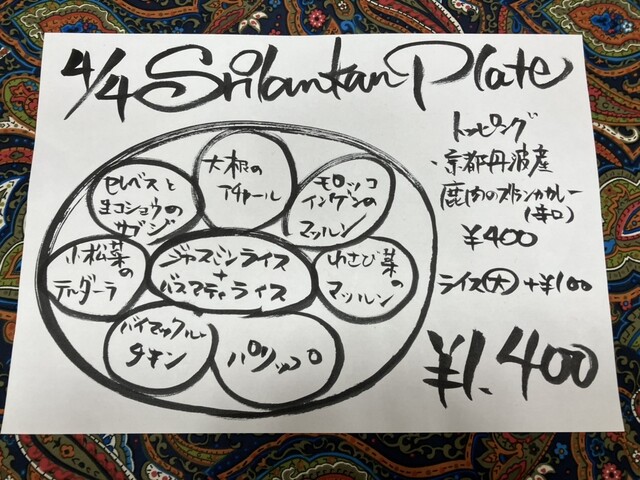 4/4 Srilankan Plate
大根の
アチャール
セレベスと
生コショウの
サブジ
モロッコ
インゲンの
マッルン
小松菜の
テルダーラ
ジャスミンライス
+
バスマティライス
わさび菜
の
マッルン
バイマックルー
チキン
パリップ
トッピング
・京都丹波産
鹿肉のスリランカカレー
(辛口)
¥400
ライス(大)+¥100
¥1,400